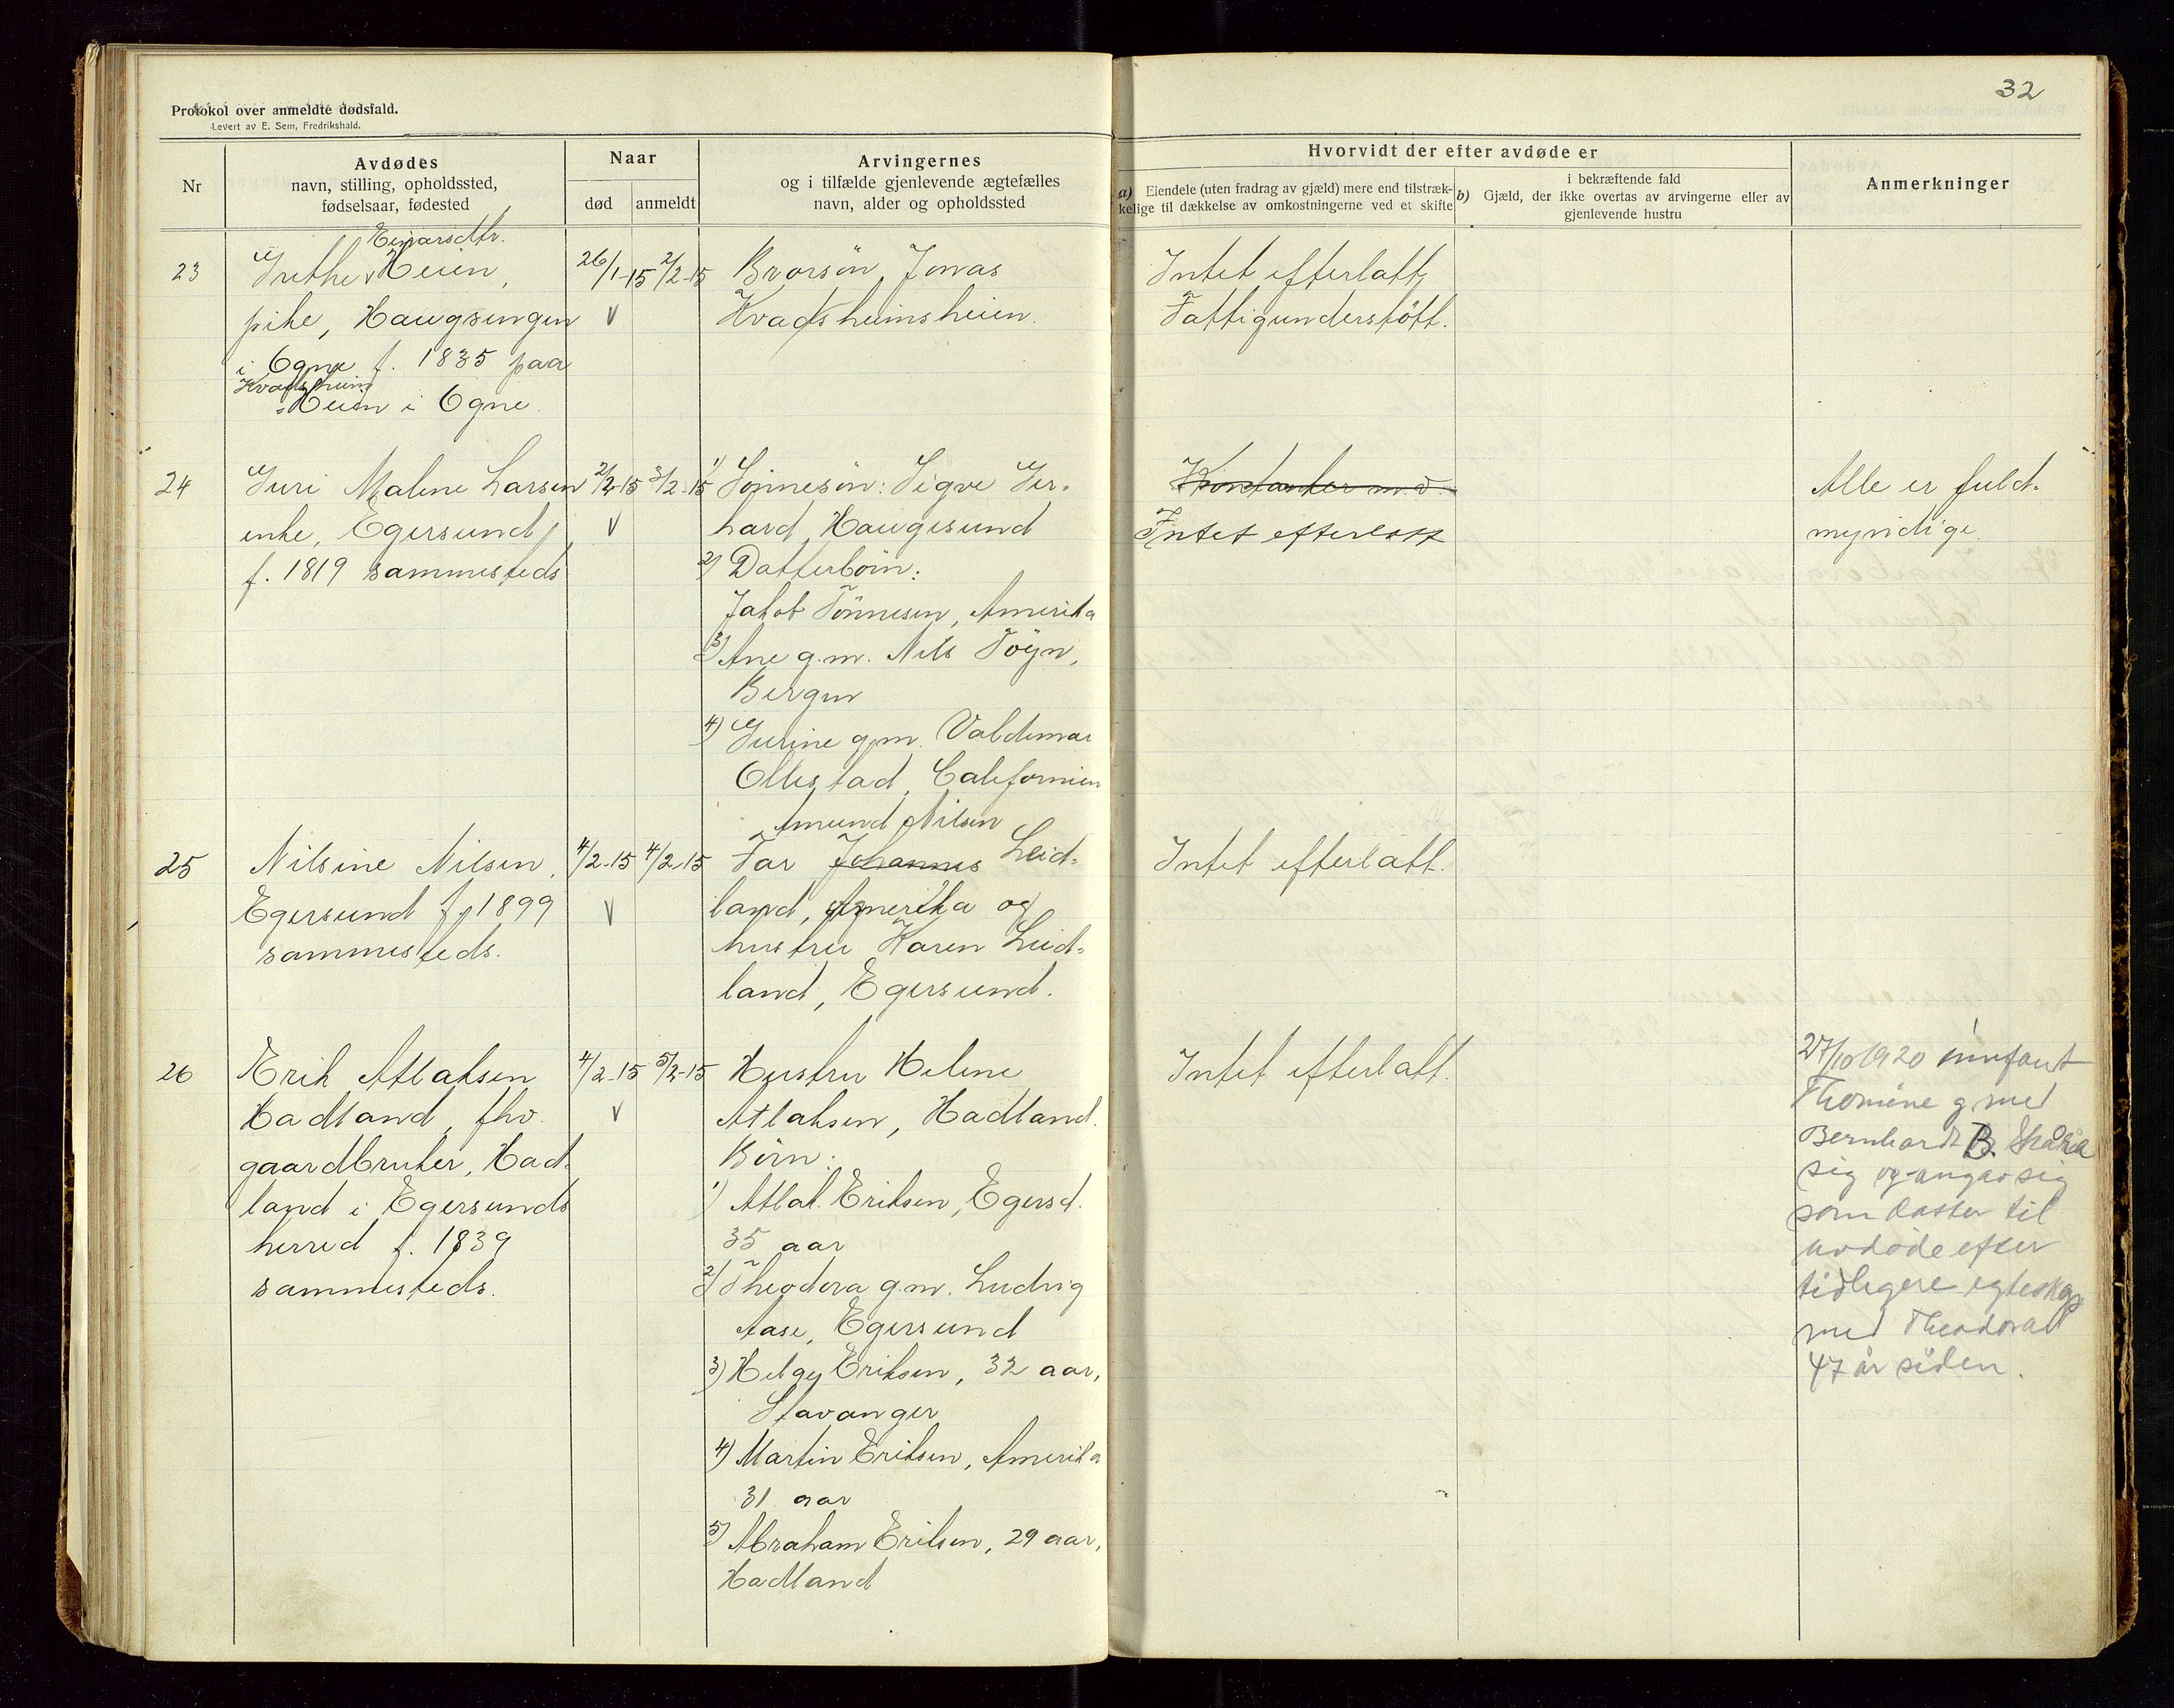 32
Protokol over anmeldte dødsfald.
Levert av E. Sem, Fredrikshald.
Nr
Avdødes
navn, stilling, opholdssted,
fødselsaar, fødested
Naar
død
anmeldt
Arvingernes
og i tilfælde gjenlevende ægtefælles
navn, alder og opholdssted
Hvorvidt der efter avdøde er
a) Eiendele (uten fradrag av gjæld) mere end tilstræk-
kelige til dækkelse av omkostningerne ved et skifte
i bekræftende fald
b) Gjæld, der ikke overtas av arvingerne eller av
gjenlevende hustru
Anmerkninger
23
Einarsdtr.
Grethe Heien,
pike, Haugsengen
i Ogne f. 1835 paa
Kvadsheim
Heien i Ogne.
26/1-15
2/2-15
V
Brorsøn Jonas
Kvadsheimsheien.
Intet efterlatt,
Fattigunderstøtt.
24
Guri Malene Larsen
enke, Egersund,
f. 1819 sammesteds
2/2-15
3/2-15
V
1) Sønnesøn: Sigve Ger-
hard, Haugesund
2) Datterbørn:
Jakob Tönnesen, Amerika
3) Ane g.m. Nils Töyn,
Bergen
4) Gurine g.m. Valdemar
Ollestad, Californien
Kontanter m.v.
Intet efterlatt
Alle er fuld-
myndige.
25
Nilsine Nilsen,
Egersund f. 1899
sammesteds.
4/2-15
4/2-15
V
Amund Nilsen
Far Johannes Leid-
land, Amerika og
hustru Karen Leid-
land, Egersund.
Intet efterlatt.
26
Erik Atlaksen
Hadland, fhv.
gaardbruker, Had-
land i Egersunds
herred f. 1839
sammesteds.
4/2-15
5/2-15
V
Hustru Helene
Atlaksen, Hadland.
Børn:
1) Atlak Eriksen, Egersd.
35 aar
2) Theodora g.m. Ludvig
Aase, Egersund
3) Helgej Eriksen, 32 aar,
Stavanger
4) Martin Eriksen, Amerika
31 aar
5) Abraham Eriksen, 29 aar,
Hadland
Intet efterlatt.
27/10 1920 innfant
Thomine g med
Bernhard B. Skåra
sig og angav sig
som datter til
avdøde efter
tidligere egteskap
med Theodora
47 år siden.